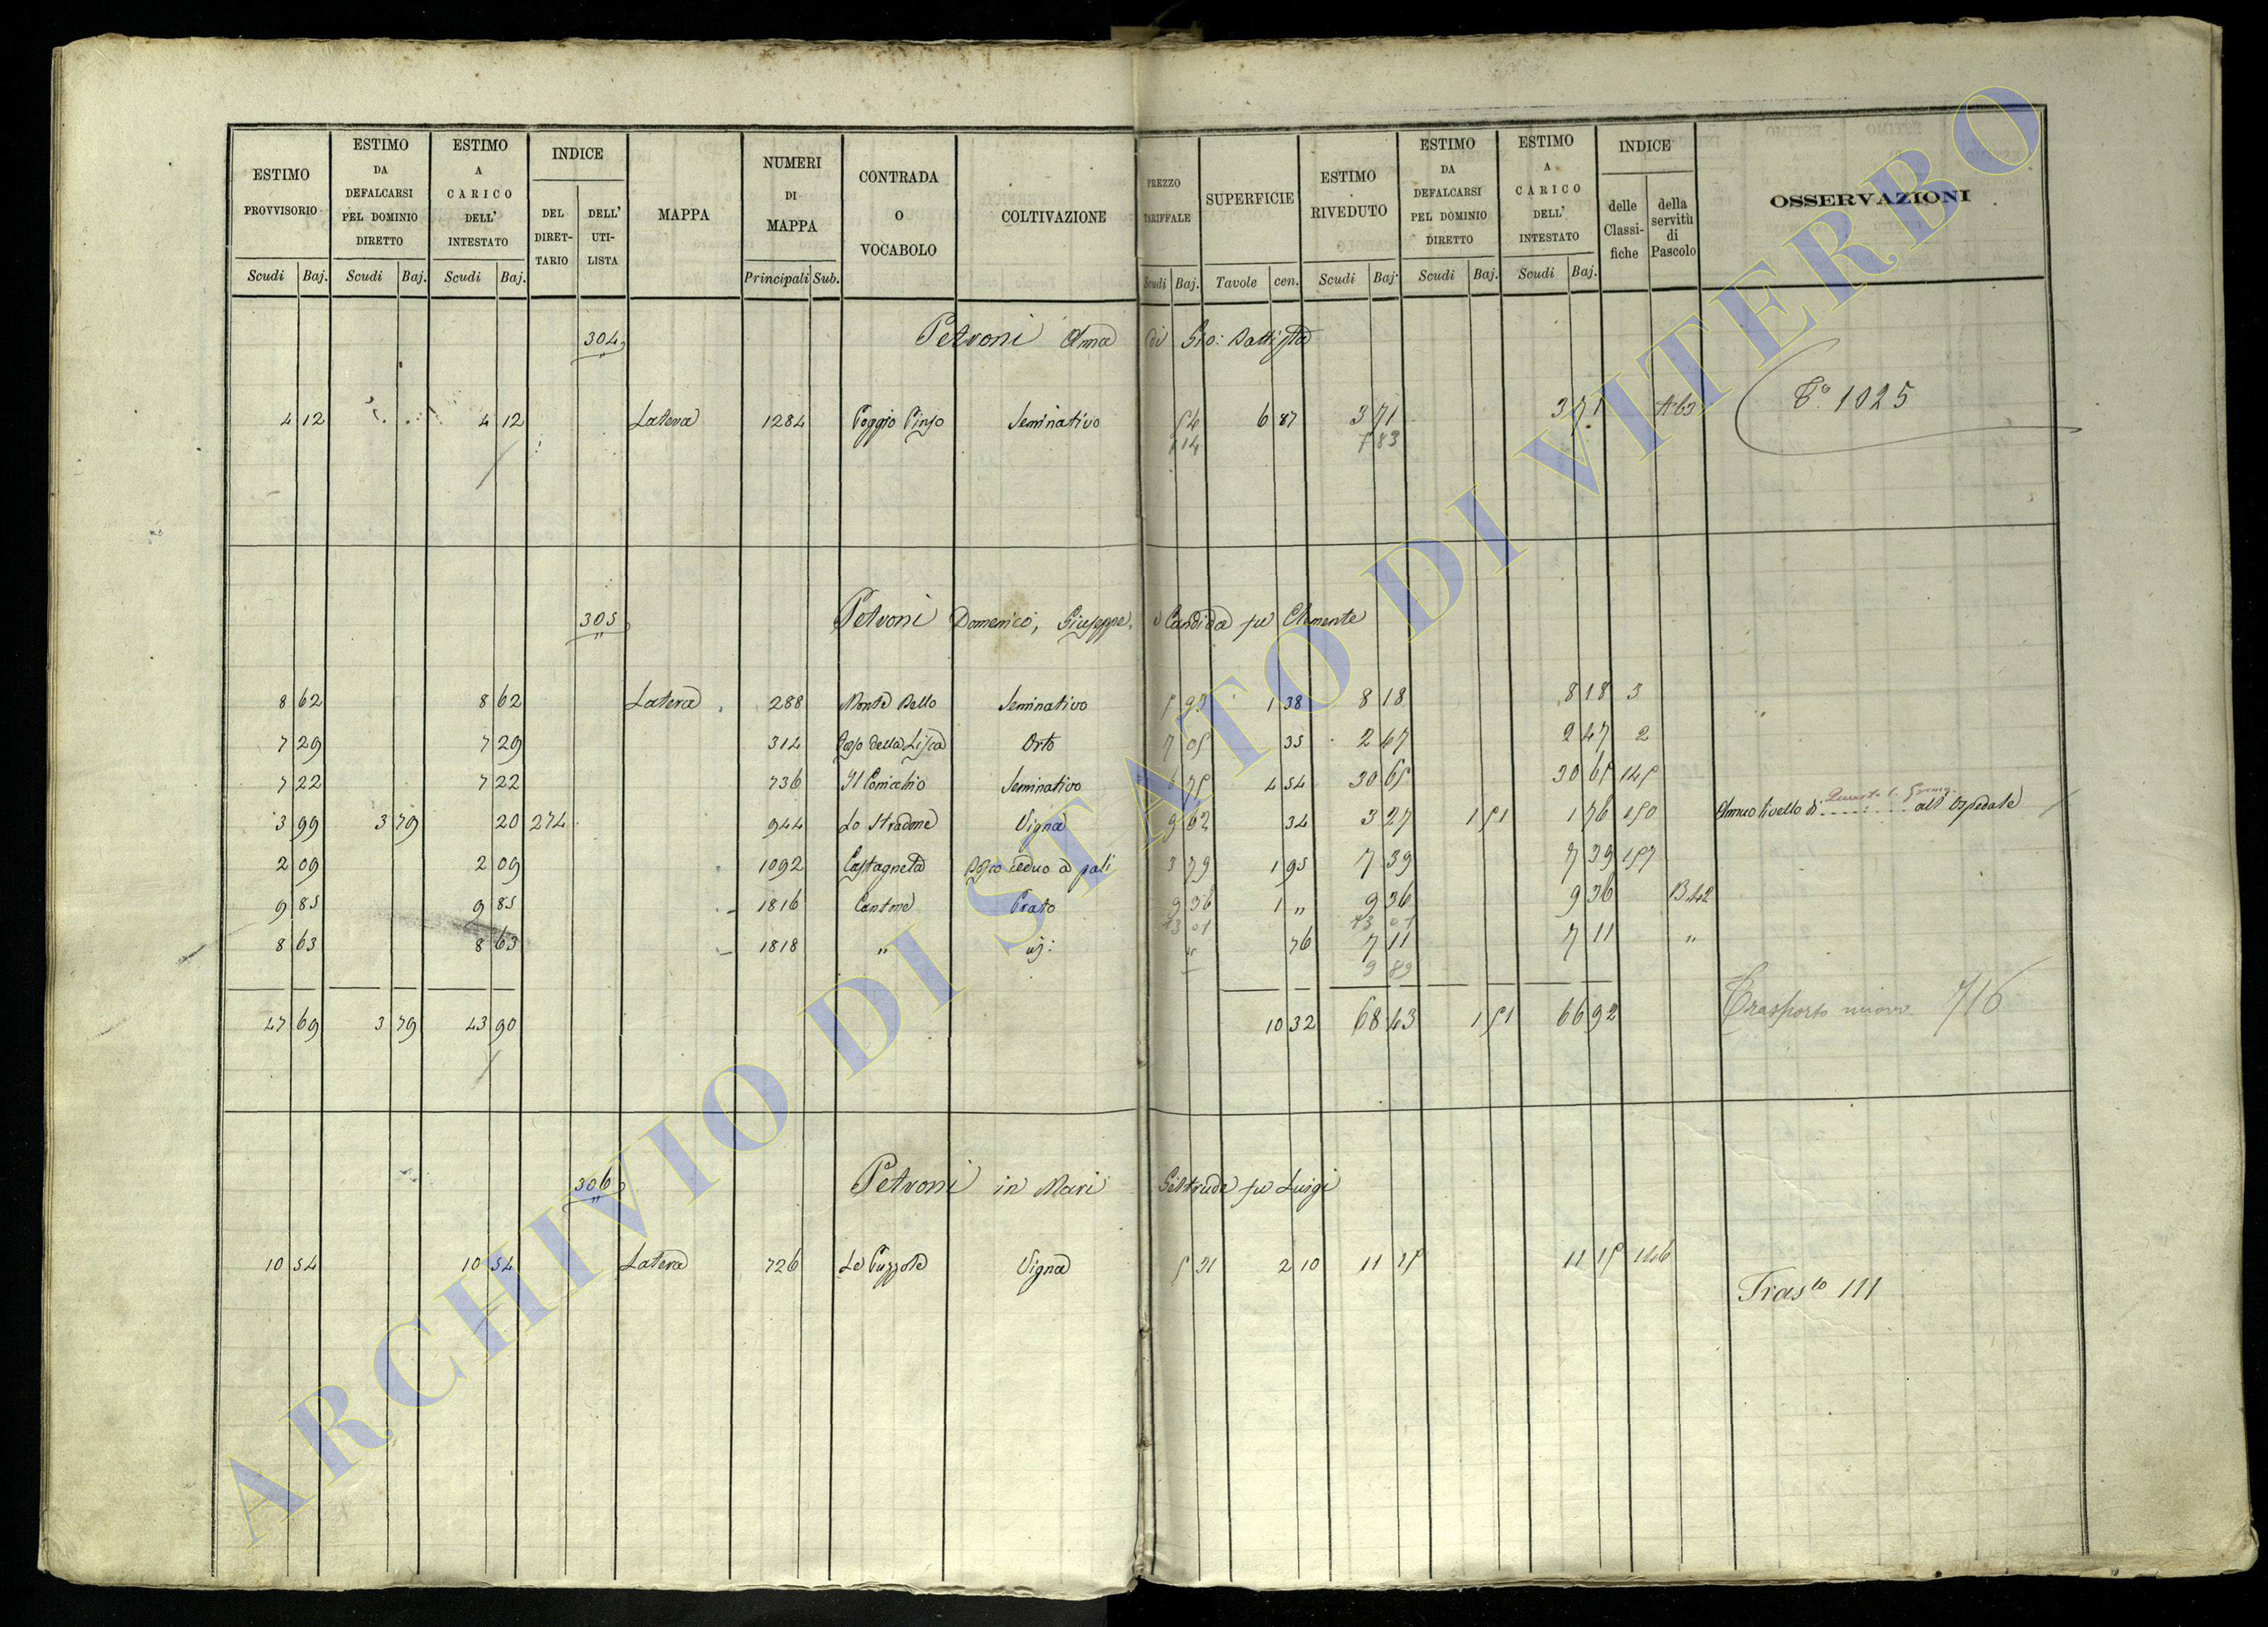 ESTIMO PROVVISORIO | ESTIMO DA DEFALCARSI PEL DOMINIO DIRETTO | ESTIMO A CARICO DELL' INTESTATO | INDICE | MAPPA | NUMERI DI MAPPA | CONTRADA O VOCABOLO | COLTIVAZIONE | PREZZO TARIFFALE | SUPERFICIE | ESTIMO RIVEDUTO | ESTIMO DA DEFALCARSI PEL DOMINIO DIRETTO | ESTIMO A CARICO DELL' INTESTATO | INDICE | OSSERVAZIONI
DEL DIRET-TARIO | DELL' UTI-LISTA | delle Classi-fiche | della servitù di Pascolo
Scudi Baj. | Scudi Baj. | Scudi Baj. | Principali Sub. | Scudi Baj. | Tavole cen. | Scudi Baj. | Scudi Baj. | Scudi Baj.
304 Petroni Anna di Gio: Battista
4 12 | 4 12 | Latera | 1284 | Poggio Pinzo | Seminativo | 54 | 6 87 | 3 71 | 3 71 | A 63 | T.o 1025
14 | 83
305 Petroni Domenico, Giuseppe, e Candida fu Clemente
8 62 | 8 62 | Latera | 288 | Monte Bello | Seminativo | 5 93 | 1 38 | 8 18 | 8 18 | 3
7 29 | 7 29 | 314 | della Lisca | Orto | 7 05 | 35 | 2 47 | 2 47 | 2
7 22 | 7 22 | 736 | Il Cornacchio | Seminativo | 6 75 | 4 54 | 30 65 | 30 65 | 145
3 99 | 3 79 | 20 | 274 | 944 | Lo Stradone | Vigna | 9 62 | 34 | 3 27 | 1 51 | 1 76 | 150 | Annuo livello di ........ all' Ospedale
2 09 | 2 09 | 1092 | Castagneta | Bosco ceduo a pali | 3 79 | 1 95 | 7 39 | 7 39 | 157
9 85 | 9 85 | 1816 | Cantone | Prato | 9 36 | 1 „ | 9 36 | 9 36 | B 42
13 01 | 13 01
8 63 | 8 63 | 1818 | „ | id: | „ | 76 | 7 11 | 7 11 | „
9 89
47 69 | 3 79 | 43 90 | 10 32 | 68 43 | 1 51 | 66 92 | Trasporto nuovo 716
306 Petroni in Mari Geltrude fu Luigi
10 54 | 10 54 | Latera | 726 | Le Puzzole | Vigna | 5 31 | 2 10 | 11 15 | 11 15 | 146
Tras.to 111
ARCHIVIO DI STATO DI VITERBO